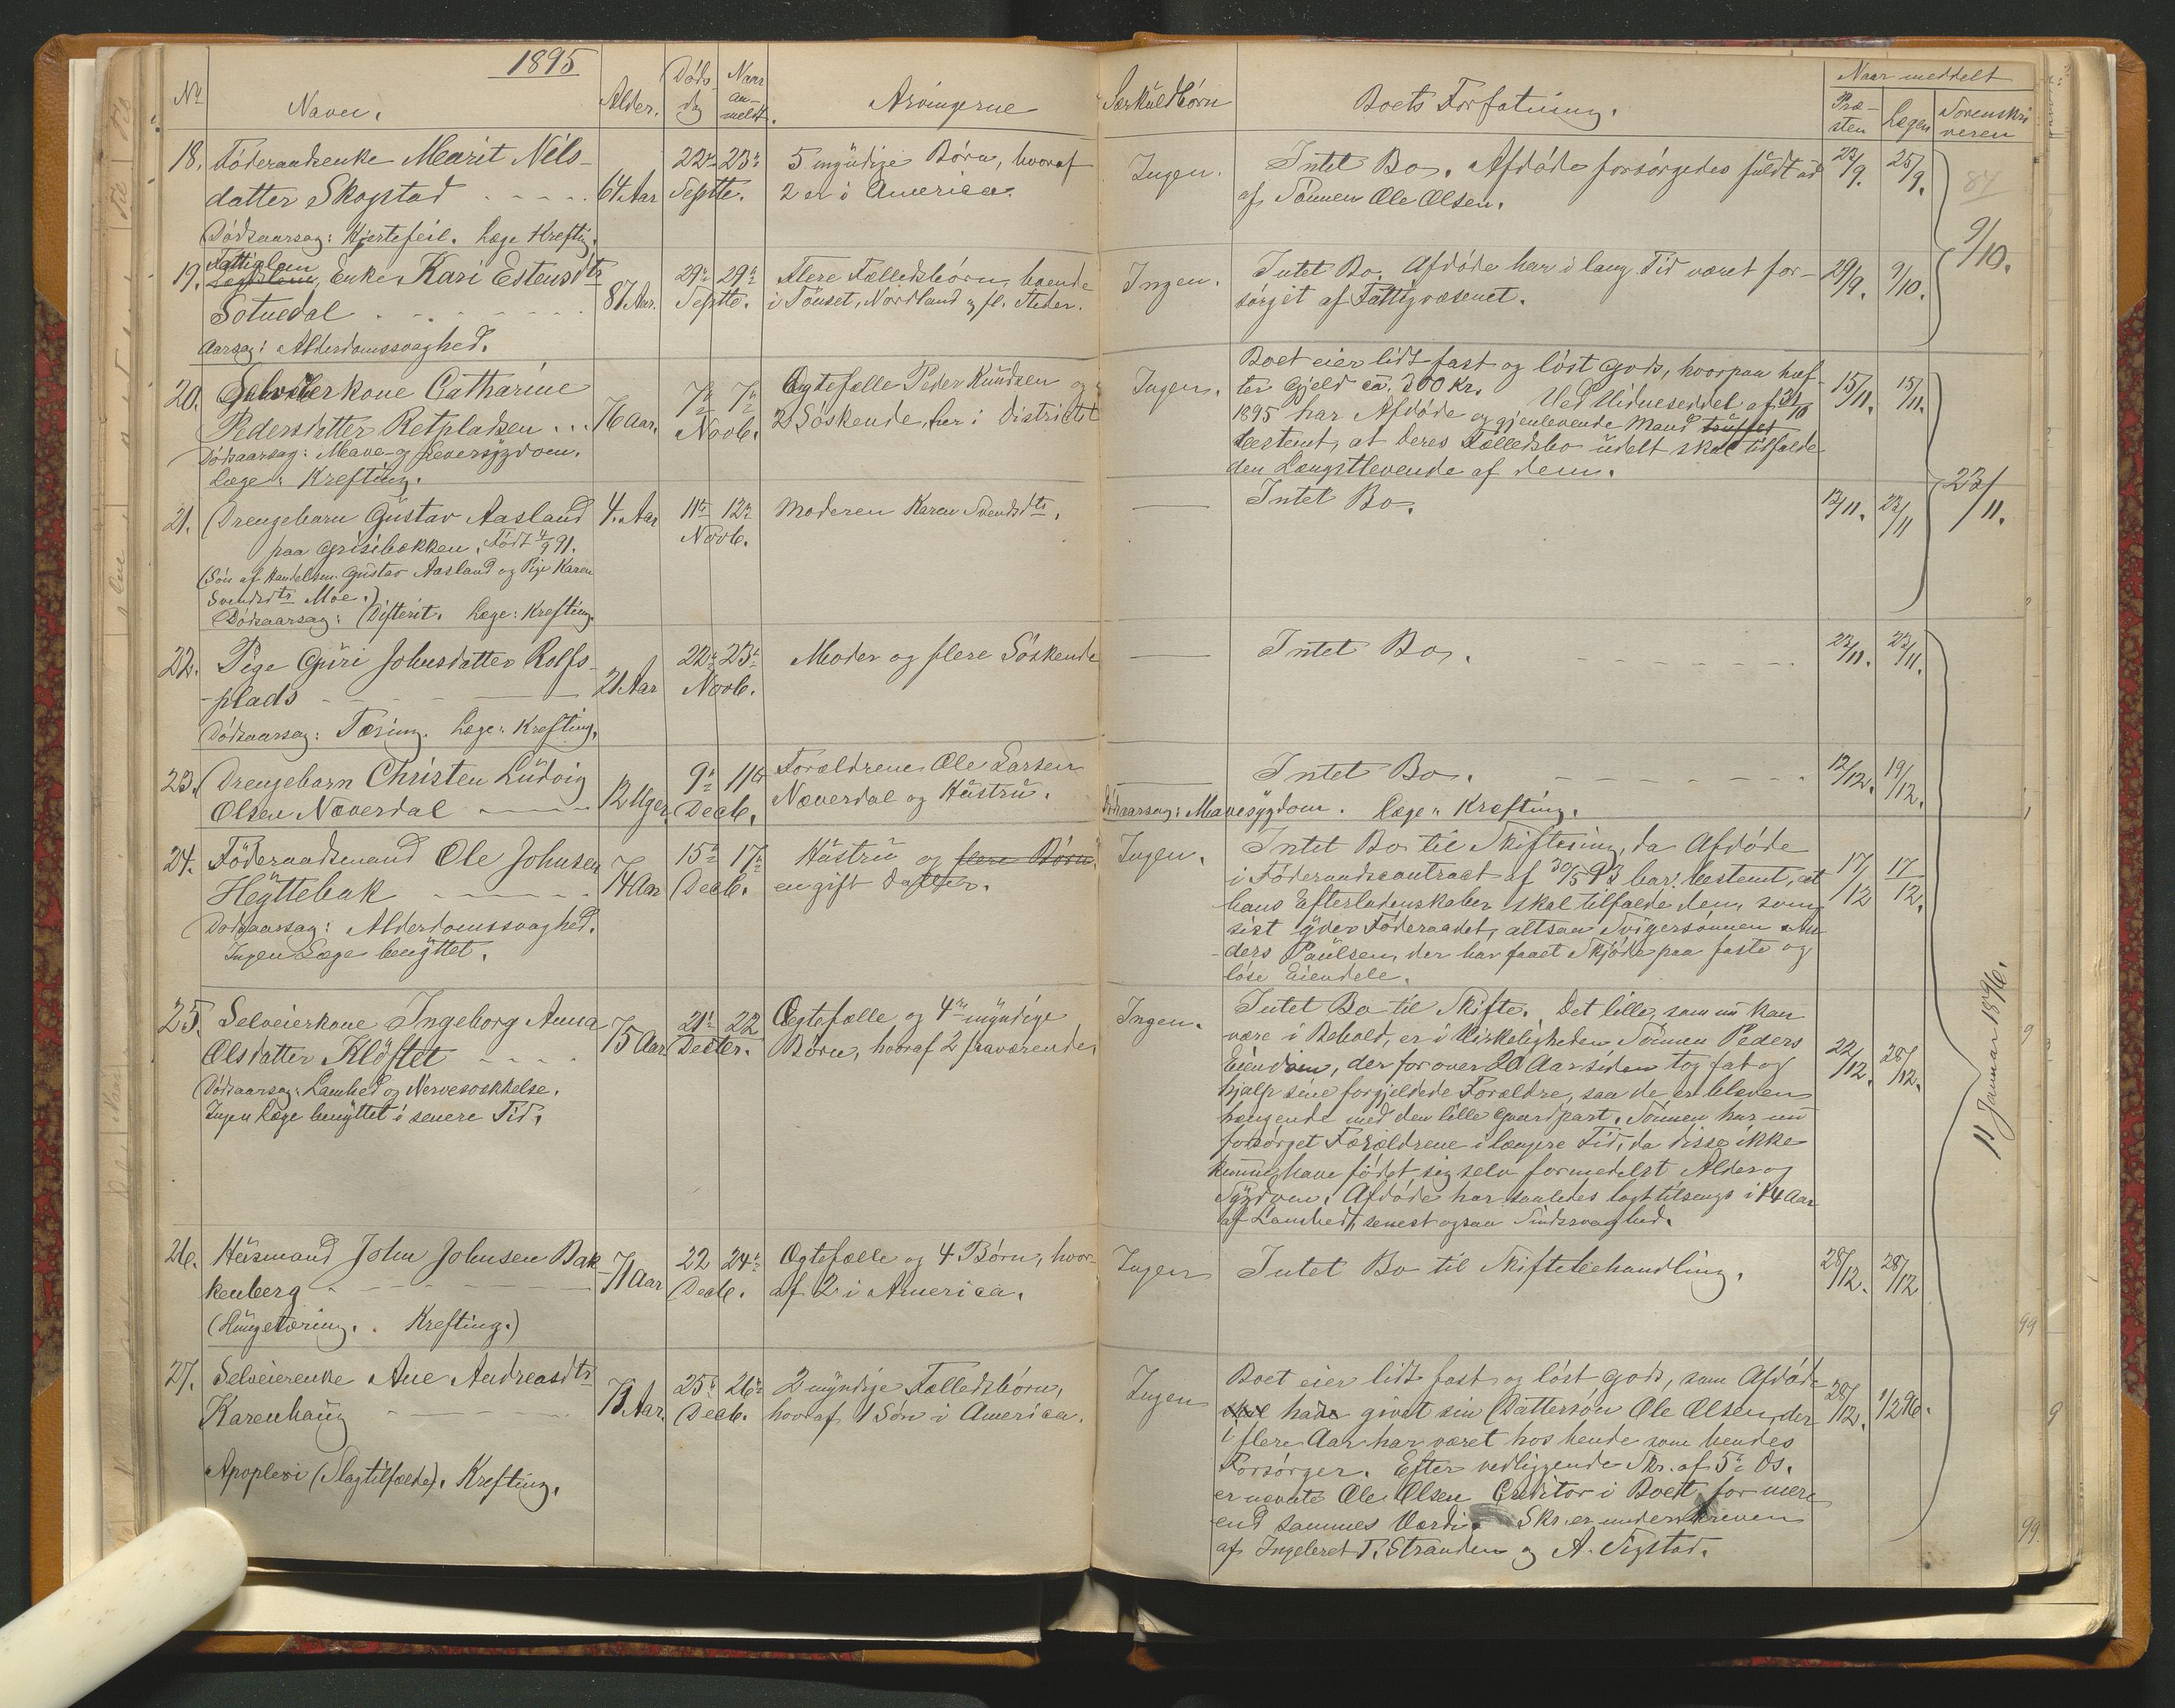 1895
No
Naven.
Alder.
Döds-
dag
Naar
an-
meldt.
Arvingerne
Særkuldbörn
Boets Forfatning.
Naar meddelt
Præ-
sten
Lægen
Sorenskri
veren
18. Föderaadsenke Marit Nils-
datter Skogstad - - - - 64 Aar
22de 23de
Septbr.
5 myndige Börn, hvoraf
2 er i America.
Ingen.
Intet Bo. Afdöde forsörgedes fuldt ud
af Sönnen Ole Olsen.
23/9. 25/9.
84
Dödsaarsag: Hjertefeil. Læge Krefting.
19. Fattiglem
Lægdslem, Enke Kari Estensdtr
Sotuedal - - - - - 87 Aar.
29de 29de
Septbr.
Flere Fælledsbörn, boende
i Tönset, Nordland og fl. Steder.
Ingen.
Intet Bo. Afdöde har i lang Tid været for-
sörget af Fattigvæsenet.
29/9. 9/10.
9/10.
Aarsag: Alderdomssvaghed.
20. Selveierkone Catharine
Pedersdatter Retpladsen ... 76 Aar.
7de 7de
Novb.
Ægtefælle Peder Knudsen og
2 Söskende, her i Districtet
Ingen.
Boet eier lidt fast og löst Gods, hvorpaa hæf-
ter Gjeld ca. 300 Kr. Ved Vidneseddel af 31/10
1895 har Afdöde og gjenlevende Mand truffet
bestemt, at deres Fælledsbo udelt skal tilfalde
den Længstlevende af dem.
15/11. 15/11.
Dödsaarsag: Mave- og Leversygdom.
Læge: Krefting.
21. Drengebarn Gustav Aasland 4. Aar
paa Grisibækken, Födt 4/9 91.
(Sön af Handelsm. Gustav Aasland og Pige Karen
Svendsdtr Moe.)
Dödsaarsag: Difterit. Læge: Krefting.
11te 12te
Novb.
Moderen Karen Svendsdtr.
Intet Bo.
13/11. 23/11
23/11.
22. Pige Guri Johnsdatter Rolfs-
plads - - - 21 Aar
22de 23de
Novb.
Moder og flere Söskende
Intet Bo.
23/11. 23/11.
Dödsaarsag: Tæring. Læge: Krefting.
23. Drengebarn Christen Ludvig
Olsen Næverdal - - - 12 Uger.
9de 11te
Decb.
Forældrene Ole Larsen
Næverdal og Hustru.
Intet Bo.
12/12. 19/12.
Dödsaarsag: Mavesygdom. Læge: Krefting.
24. Föderaadsmand Ole Johnsen
Hegttebak - - - - 74 Aar
15de 17de
Decb.
Hustru og flere Börn
en gift Datter.
Ingen.
Intet Bo til Skiftering, da Afdöde
i Föderaadscontract af 30/5 93 har bestemt, at
hans Efterladenskaber skal tilfalde dem, som
sist yder Föderaadet, altsaa Svigersönnen An-
ders Paulsen, der har faaet Skjöde paa faste og
löse Eiendele.
17/12 17/12.
Dödsaarsag: Alderdomssvaghed.
Ingen Læge benyttet.
25. Selveierkone Ingeborg Anna
Olsdatter Klöftet - - - 75 Aar
21de 22
Decbr.
Ægtefælle og 4re myndige
Börn, hvoraf 2 fraværende.
Ingen.
Intet Bo til Skifte. Det lille, som nu kan
være i Behold, er i Virkeligheden Sönnen Peders
Eiendom, der for over 20 Aar siden tog fat og
hjalp sine forgjeldede Forældre, saa de er bleven
hængende med den lille Gaardpart. Sönnen har nu
forsörget Forældrene i længere Tid, da disse ikke
kunne have födet sig selv formedelst Alder og
Sygdom. Afdöde har saaledes lagt tilsengs i 14 Aar
af Lamhed, senest ogsaa Sindssvaghed.
22/12. 28/12.
Dödsaarsag: Lamhed og Nervesvækkelse.
Ingen Læge benyttet i senere Tid.
11 Januar 1896.
26. Husmand John Johnsen Bak-
kenberg - - - - 71 Aar
22 24de
Decb.
Ægtefælle og 4 Börn, hvor-
af 2 i America.
Ingen
Intet Bo til Skiftebehandling.
28/12. 28/12
(Lungetæring. Krefting.)
27. Selveierenke Ane Andreasdtr
Karenhaug - - - 73 Aar.
25de 26de
Decb.
2 myndige Fælledsbörn,
hvoraf 1 Sön i America.
Ingen
Boet eier lidt fast og löst Gods, som Afdöde
skal hade givet sin Dattersön Ole Olsen, der
i flere Aar har været hos hende som hendes
Forsörger. Efter vedliggende Skr. af 5te Ds.
er nævnte Ole Olsen Creditor i Boet for mere
end sammes Værdi. Skr. er underskreven
af Ingebret T. Stranden og A. Sigstad.
28/12. 1/2 96.
Apoplexi (Slagtilfælde). Krefting.